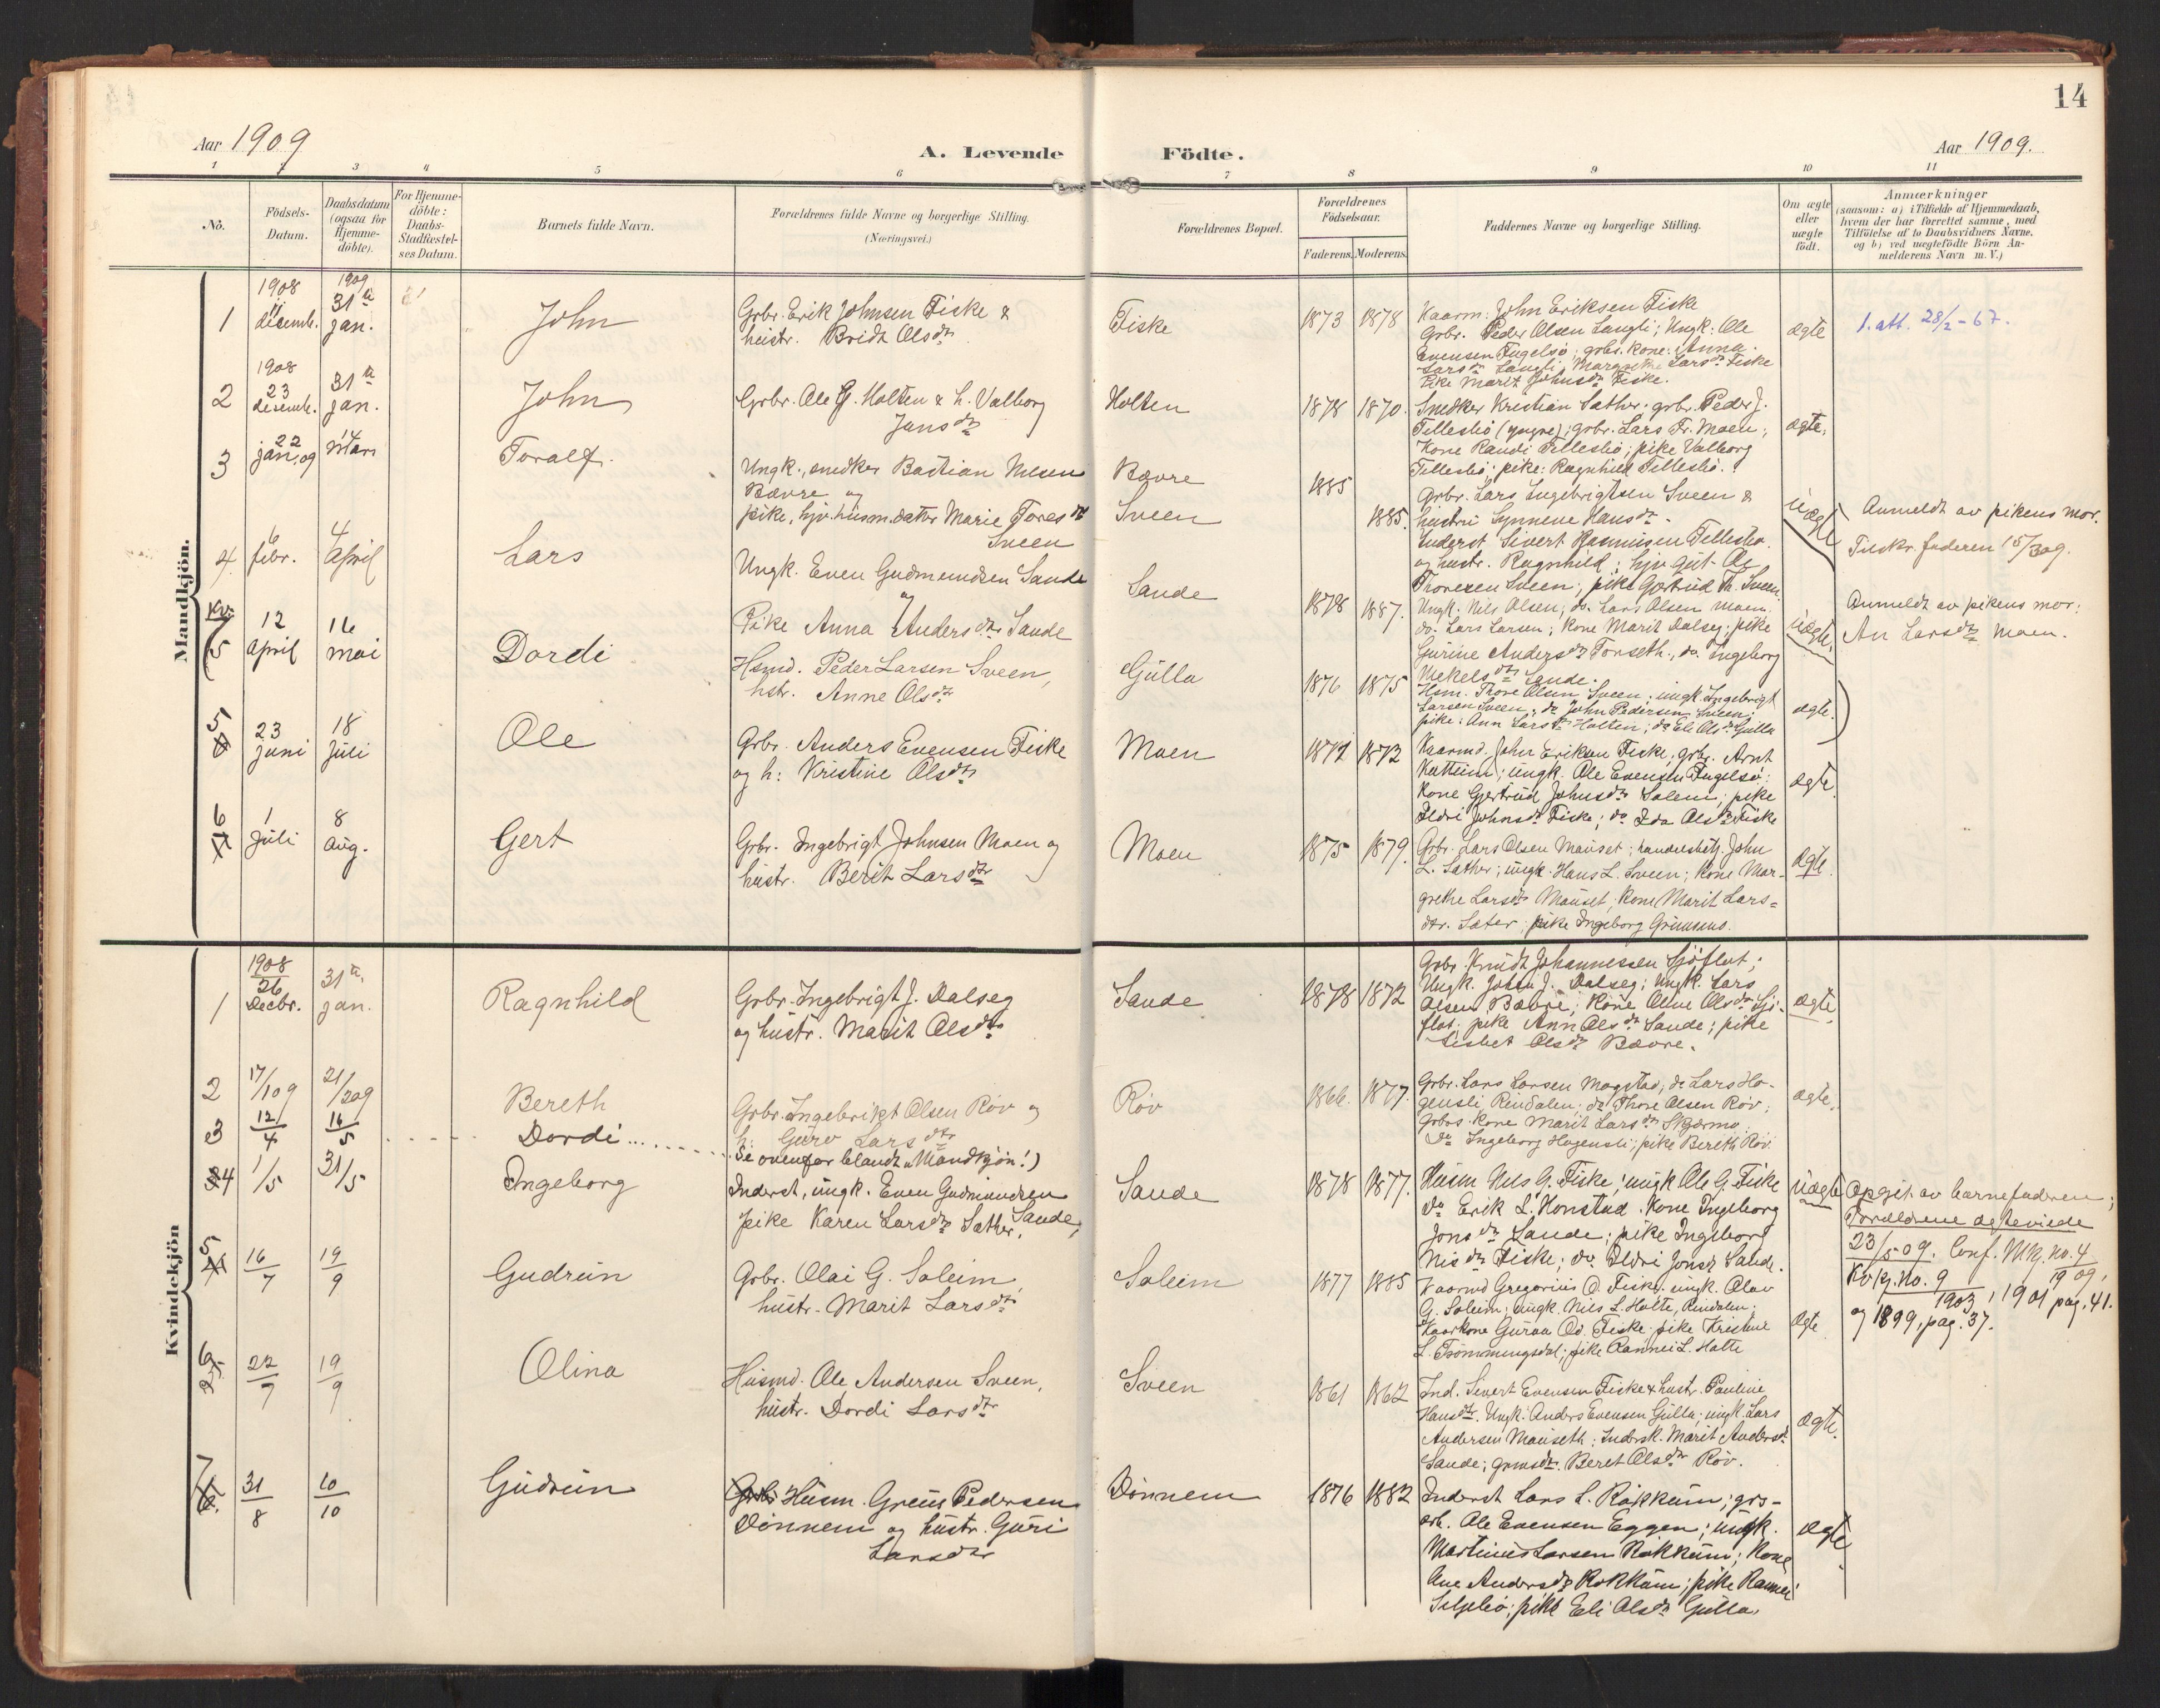 14
Aar 1909
A. Levende
Födte.
Aar 1909.
1 2 3 4 5 6 7 8 9 10 11
No.
Födsels-
Datum.
Daabsdatum
(ogsaa for
Hjemme-
döbte).
For Hjemme-
döbte:
Daabs-
Stadfæstel-
ses Datum.
Barnets fulde Navn.
Forældrenes fulde Navne og borgerlige Stilling.
(Næringsvei.)
Forældrenes Bopæl.
Forældrenes
Födselsaar.
Faderens. Moderens.
Faddernes Navne og borgerlige Stilling.
Om ægte
eller
uægte
födt.
Anmærkninger
(saasom: a) i Tilfælde af Hjemmedaab,
hvem der har forrettet samme, med
Tilföielse af to Daabsvidners Navne.
og b) ved uægtefödte Börn An-
melderens Navn m. V.)
Mandkjön.
1
1908
11
decemb.
1909
31te
jan.
John
Grbr. Erik Johnsen Fiske &
hustr. Bridt Olsdtr
Fiske
1873 1878
Kaarm. John Eriksen Fiske
Grbr. Peder Olsen Langli; Ungk: Ole
Evensen Fugelsö; grbr. kone: Anna
Larsdtr Langli, Margrethe Larsdtr Fiske
Pike Marit Johnsdtr Fiske.
ægte
1. att. 28/2-67.
2
1908
23
decemb.
31te
jan.
John
Grbr. Ole G. Holten & h. Valborg
Jonsdtr
Holten
1878 1870.
Snedker Kristian Sæther. grbr. Peder J.
Tellesbö (yngre); grbr. Lars Fr. Moen;
Kone Randi Tellesbö; pike Valborg
Tellesbö; pike: Ragnhild Tellesbö.
ægte.
3
22
jan. 09
14
mars
Toralf.
Ungk., snedker Bastian Nilsen
Bævre og
pike, hjv. husm.datter Marie Toresdtr
Sveen
Bævre
Sveen
1885
1885.
Grbr. Lars Ingebrigtsen Sveen &
hustru Synnene Hansdtr.
Inderst Sivert Rasmussen Tellesbö
og hustr. Ragnhild; hjv. gut Ole
Thoresen Sveen; pike Gjertrud Th. Sveen
uægte
Anmeldt av pikens mor.
Tilskr. faderen 15/3 09.
4
6
febr.
4
april
Lars
Ungk. Even Gudmundsen Sande
og
Pike Anna Andersdtr Sande
Sande
1878 1887.
Ungk. Nils Olsen; do. Lars Olsen Moen.
do. Lars Larsen; Kone Marit Dalseg; pike
Gurine Andersdtr Torseth., do. Ingeborg
Mekelsdtr Sande.
uægte.
Anmeldt av pikens mor:
An Larsdtr Moen.
Kv:
5
12
april
16
mai
Dordi
Hsmd. Peder Larsen Sveen,
hstr. Anne Olsdtr
Gulla
1876 1875
Hsm. Thore Olsen Sveen; ungk. Ingebrigt
Larsen Sveen; do John Pedersen Sveen;
pike: Ann Larsdtr Holten; do Eli Olsdtr Gulla
ægte.
5
6
23
juni
18
juli
Ole
Grbr. Anders Evensen Fiske
og h: Kristine Olsdtr
Moen
1872 1873
Kaarmd. John Eriksen Fiske; grbr. Arnt
Katteim; ungk. Ole Evensen Fugelsö:
Kone Gjertrud Johnsdtr Solem; pike
Ildri Johnsdtr Fiske; do Ida Olsdtr Fiske
ægte.
6
7
1
juli
8
aug.
Gert
Grbr. Ingebrigt Johnsen Moen og
hustr. Berit Larsdtr
Moen
1875 1879.
Grbr. Lars Olsen Mauset; handelsbetj. John
L. Sæther; ungk. Hans L. Sveen; kone Mar-
grethe Larsdtr Mauset; kone Marit Lars=
dtr. Sæter; pike Ingeborg Grimsmo.
ægte.
Kvindekjön
1
1908
26
Decbr.
31te
jan.
Ragnhild
Grbr. Ingebrigt J. Dalseg
og hustr. Marit Olsdtr
Sande
1878 1872
Grbr. Knudt Johannessen Sjöflot;
Ungk. John J. Dalseg; Ungk. Lars
Olsen Bævre; Kone Oline Olsdtr Sjö-
flot; pike Ann Olsdtr Sande; pike
Lisbet Olsdtr Bævre.
ægte
2
17/1 09
21/2 09
Bereth
Grbr. Ingebrikt Olsen Röv og
h: Guro Larsdtr
Röv
1866. 1877.
Grbr. Lars Larsen Mogstad; do Lars Ho-
gensli, Rindalen; do Thore Olsen Röv;
Grbrs. kone Marit Larsdtr Skjermo
Do Ingeborg Hogensli; pike Bereth Röv
ægte.
3
12/4
16/5
Dordi.........
Se ovenfor blandt "Mandkjön!)
34
1/5
31/5
Ingeborg
Inderst, ungk. Even Gudmundsen
Sande,
pike Karen Larsdtr Sæther,
Sande
1878 1877.
Husm Nils G. Fiske; ungk Ole G. Fiske
Do Erik L. Honstad. Kone Ingeborg
Jonsdtr Sande; pike Ingeborg
Nilsdtr Fiske; do. Ildri Jonsdtr Sande.
uægte
Opgit av barnefaderen;
Forældrene ægteviede
23/5 09. Conf. Mkj. no. 4
1909,
Kvkj. no. 9
1903, 1901 pag. 41.
og 1899, pag. 37.
5
16/7
19/9
Gudrun
Grbr. Olai G. Soleim,
hustr. Marit Larsdtr
Soleim
1877 1885
Kaarmd Gregorius O. Fiske; ungk. Olav
G. Soleim; ungk. Nils L. Holte, Rindalen;
Kaarkone Guraa Od. Fiske; pike Kristine
L. Trömmingsdal; pike Rannei L. Holte
ægte
6
22/7
19/9
Olina
Husmd. Ole Andersen Sveen,
hustr. Dordi Larsdtr
Sveen
1861 1862
Ind. Sivert Evensen Fiske & hustr. Pauline
Hansdtr. Ungk. Anders Evensen Gulla; ungk. Lars
Andersen Mauseth; Indersk. Marit Andersdtr
Sande; grmsdtr. Beret Olsdtr Röv.
ægte.
7
31/8
10/10
Gudrun
Husm. Greius Pedersen
Dönnem og hustr. Guri
Larsdtr
Dönnem
1876 1882
Inderst Lars L. Rökkum; grs-
arb. Ole Evensen Eggen; ungk.
Martinus Larsen Rökkum; Kone
Ane Andersdtr Rökkum; pike Rannei
Seljebö; pike Eli Olsdtr Gulla.
ægte